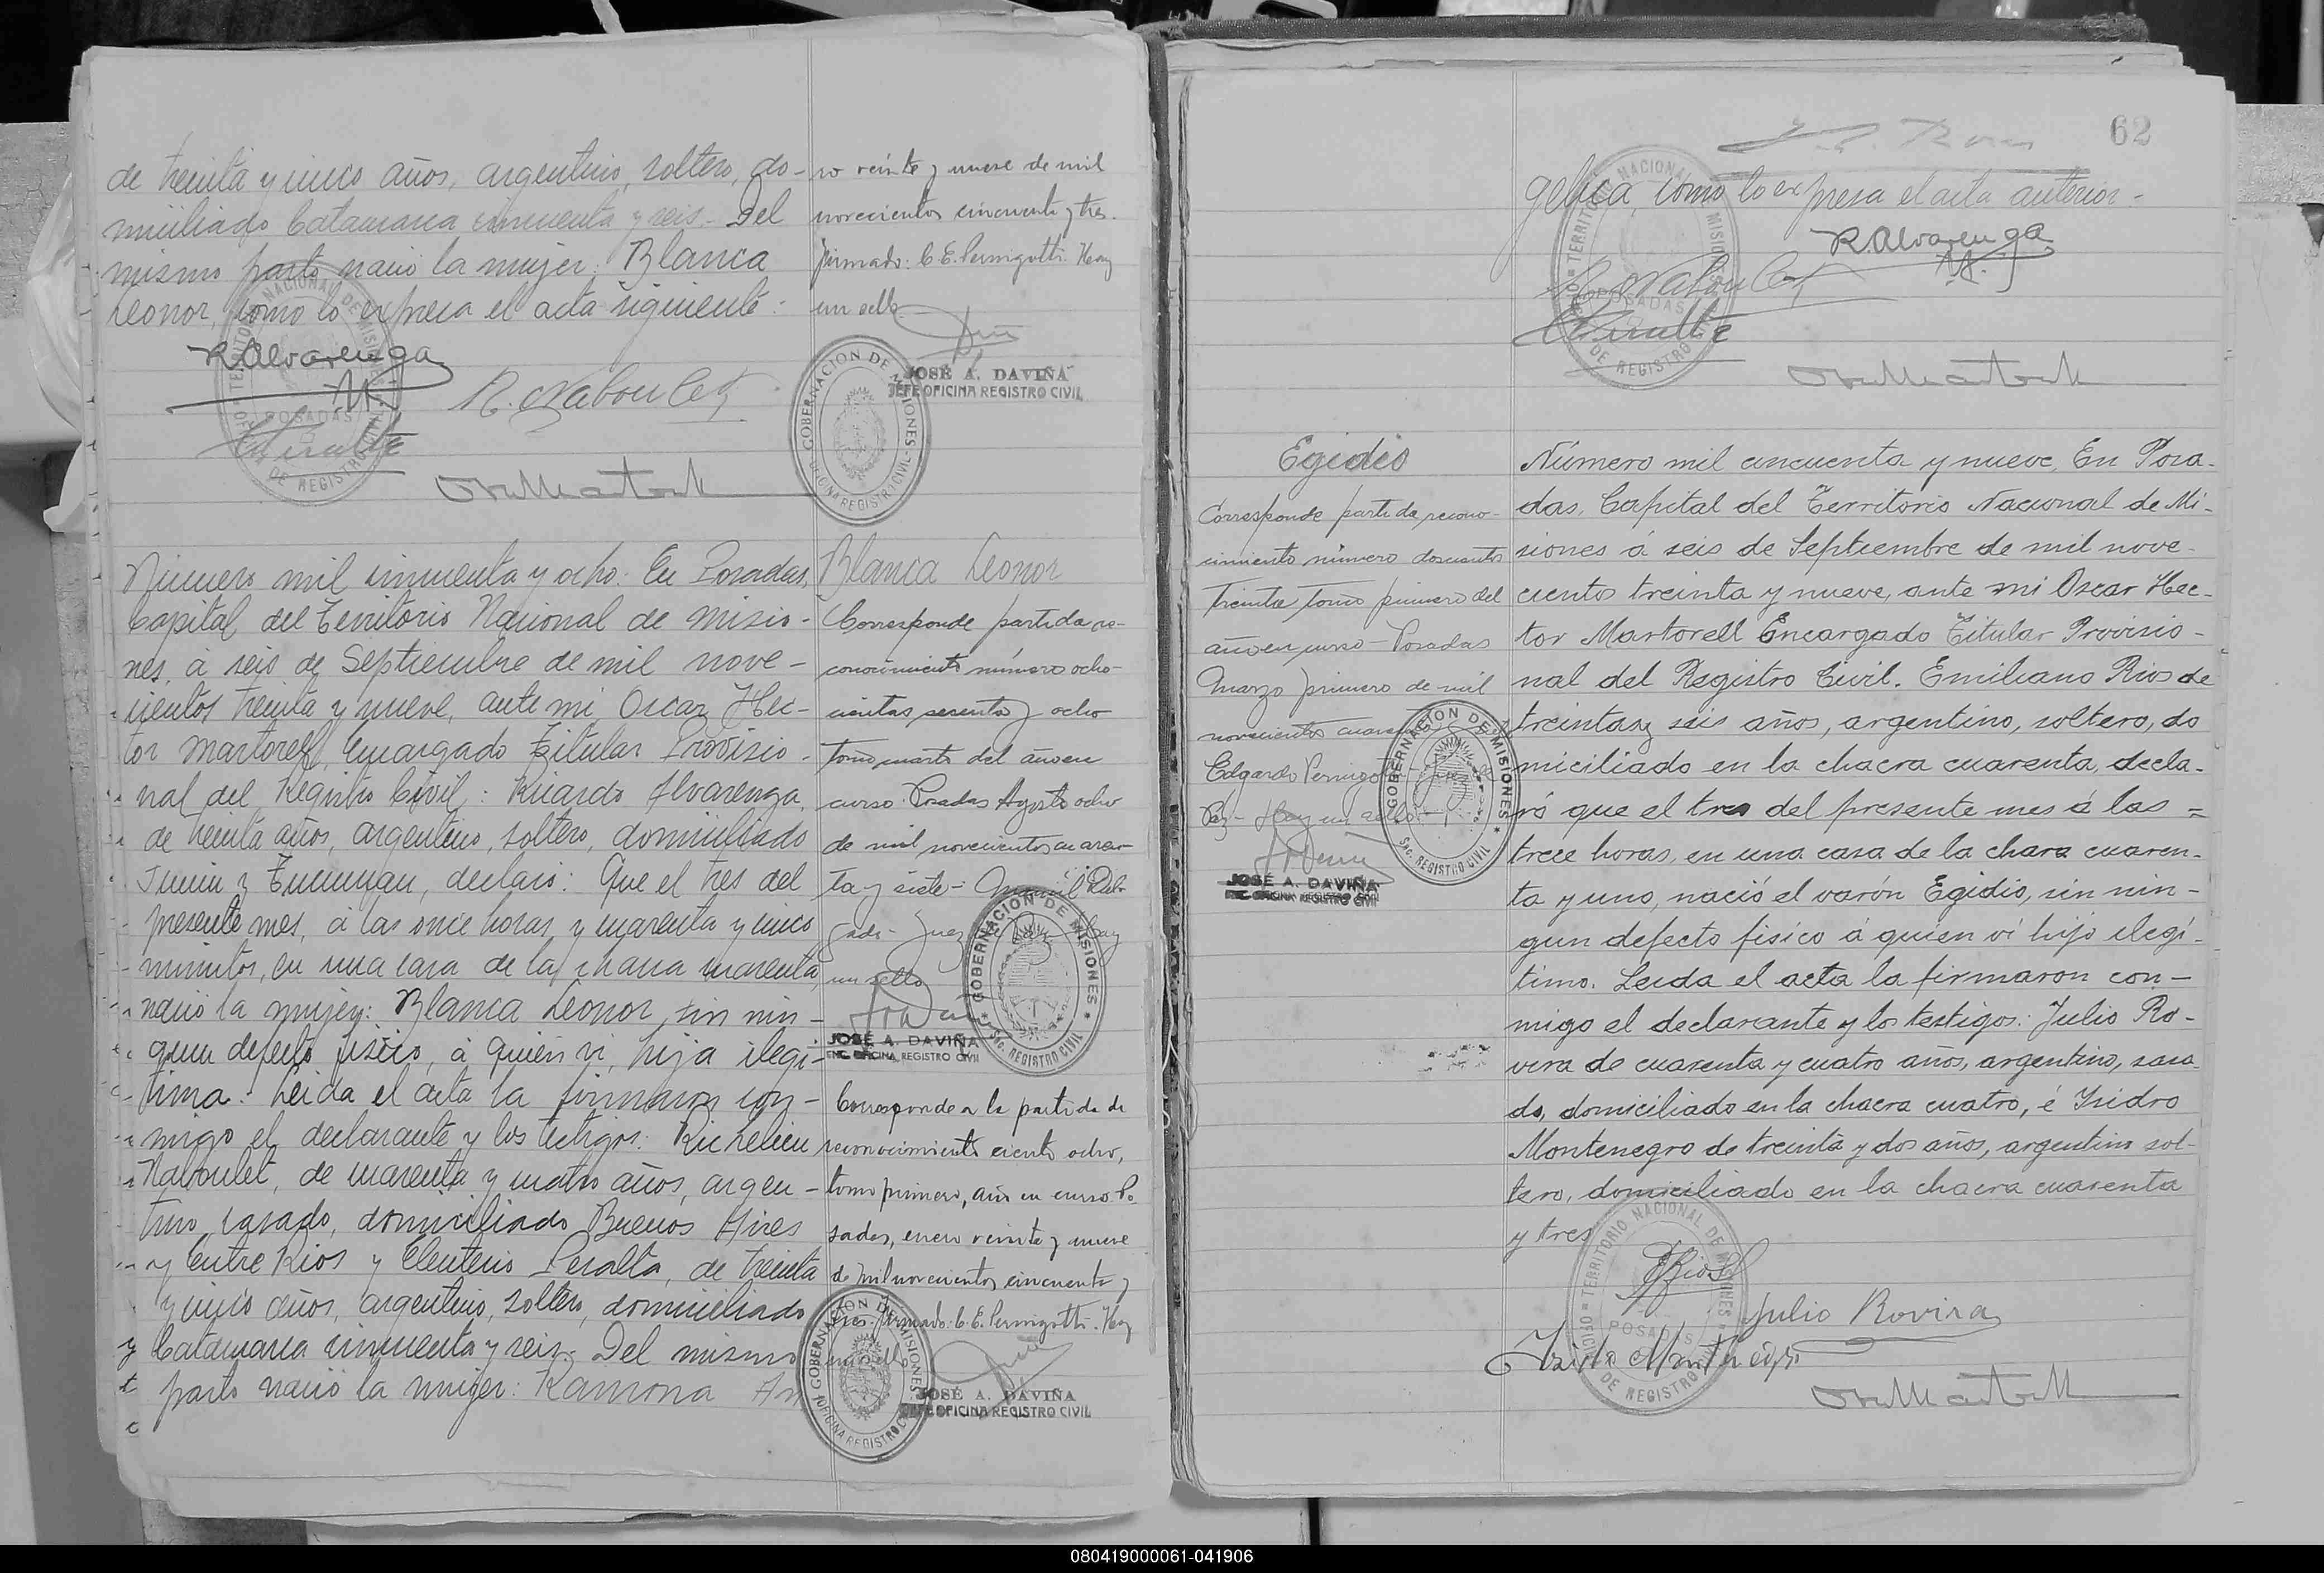 de treinta y cinco años, argentino, soltero, do-
miciliado Catamarca cincuenta y seis. Del
mismo parto nació la mujer: Blanca
Leonor, como lo expresa el acta siguiente:
R. Alvarenga
R. Naboulet
Número mil cincuenta y ocho: En Posadas,
Capital del Territorio Nacional de Misio-
nes, á seis de Septiembre de mil nove-
cientos treinta y nueve, ante mi Oscar Hec-
tor Martorell, Encargado Titular Provisio-
nal del Registro Civil: Ricardo Alvarenga,
de treinta años, argentino, soltero, domiciliado
Junin y Tucuman, declaró: Que el tres del
presente mes, á las once horas y cuarenta y cinco
minutos, en una casa de la chacra cuarenta,
nació la mujer: Blanca Leonor, sin nin-
gun defecto fisico, á quien vi, hija ilegi-
tima. Leida el acta la firmaron con-
migo el declarante y los testigos: Richelieu
Naboulet, de cuarenta y cuatro años, argen-
tino, casado, domiciliado Buenos Aires
y Entre Rios y Eleuterio Peralta, de treinta
y cinco años, argentino, soltero, domiciliado
Catamarca cincuenta y seis. Del mismo
parto nació la mujer: Ramona An
ro veinte y nueve de mil
novecientos cincuenta y tres.
Firmado: C. E. Pernigotti. Hay
un sello
JOSÉ A. DAVIÑA
JEFE OFICINA REGISTRO CIVIL
GOBERNACION DE MISIONES
OFICINA REGISTRO CIVIL
Blanca Leonor
Corresponde partida re-
conocimiento número ocho-
cientos sesenta y ocho
tomo cuarto del año en
curso. Posadas Agosto ocho
de mil novecientos cuaren-
ta y siete-
Juez
un sello
GOBERNACION DE MISIONES
SEC. REGISTRO CIVIL
JOSÉ A. DAVIÑA
ENC. OFICINA REGISTRO CIVIL
Corresponde a la partida de
reconocimiento ciento ocho,
tomo primero, año en curso. Po-
sadas, enero veinte y nueve
de mil novecientos cincuenta y
tres. Firmado: C. E. Pernigotti. Hay
un sello
GOBERNACION DE MISIONES
OFICINA REGISTRO CIVIL
JOSÉ A. DAVIÑA
JEFE OFICINA REGISTRO CIVIL
62
gelica, como lo expresa el acta anterior.-
R. Alvarenga
R. Naboulet
Egidio
Corresponde partida recono-
cimiento número doscientos
treinta tomo primero del
año en curso - Posadas
Marzo primero de mil
novecientos
Edgardo
Paz - Hay un sello
GOBERNACION DE MISIONES
SEC. REGISTRO CIVIL
JOSÉ A. DAVIÑA
ENC. OFICINA REGISTRO CIVIL
Número mil cincuenta y nueve, En Posa-
das, Capital del Territorio Nacional de Mi-
siones á seis de Septiembre de mil nove-
cientos treinta y nueve, ante mi Oscar Hec-
tor Martorell Encargado Titular Provisio-
nal del Registro Civil. Emiliano Rios de
treinta y seis años, argentino, soltero, do
miciliado en la chacra cuarenta, decla-
ró que el tres del presente mes á las =
trece horas, en una casa de la chara cuaren-
ta y uno, nació el varón Egidio, sin nin-
gun defecto fisico á quien vi hijo ilegi-
timo. Leida el acta la firmaron con-
migo el declarante y los testigos: Julio Ro-
vira de cuarenta y cuatro años, argentino, casa-
do, domiciliado en la chacra cuatro, é Isidro
Montenegro de treinta y dos años, argentino sol-
tero, domiciliado en la chacra cuarenta
y tres
ERios
Julio Rovira
Isidro Montenegro
080419000061-041906